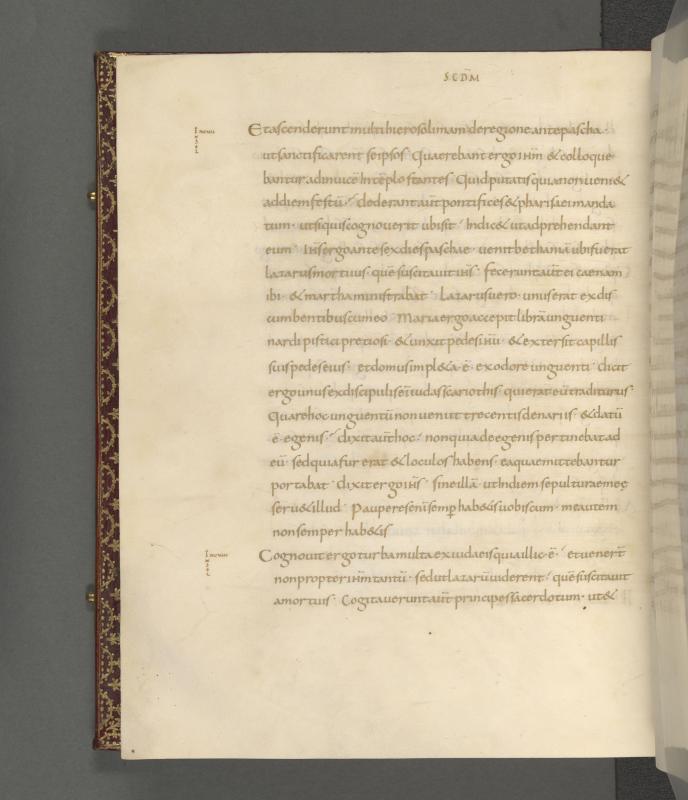 SCDM
Et ascenderunt multi hierosolimam de regione ante pascha·
ut sanctificarent seipsos· Quaerebant ergo ihm̄ & colloque
bantur adinuicē in tēplo stantes· Quid putatis quia non ueni&
ad diem festū· dederant aut̄ pontifices & pharisaei manda
tum· ut si quis cognouerit ubi sit· indic& ut adprehendant
eum· Ih̄s ergo ante sex dies paschae· uenit bethaniā ubi fuerat
lazarus mortuus· quē suscitauit ih̄s· fecerunt aut̄ ei caenam
ibi· & martha ministrabat· Lazarus uero· unus erat ex dis
cumbentibus cum eo· Maria ergo accepit librā unguenti
nardi pistici pretiosi· & unxit pedes ih̄u· & extersit capillis
suis pedes eius· et domus impl&a· ē· ex odore unguenti· dicit
ergo unus ex discipulis ei iudas scariothis· qui erat eū traditurus·
Quare hoc unguentū non uenit trecentis denariis· & datū
ē· egenis· dixit aut̄ hoc· non quia de egenis pertinebat ad
eū· sed quia fur erat & loculos habens· ea quae mittebantur
portabat· dixit ergo ih̄s· sine illā· ut in diem sepulturae meę
seru& illud· Pauperes enī semp̄ hab&is uobiscum· me autem
non semper hab&is
Cognouit ergo turba multa ex iudaeis quia illic· ē· et uener̄t
non propter ihm̄ tantū· sed ut lazarū uiderent· quē suscitauit
a mortuis· Cogitauerunt aut̄ principes sacerdotum· ut &